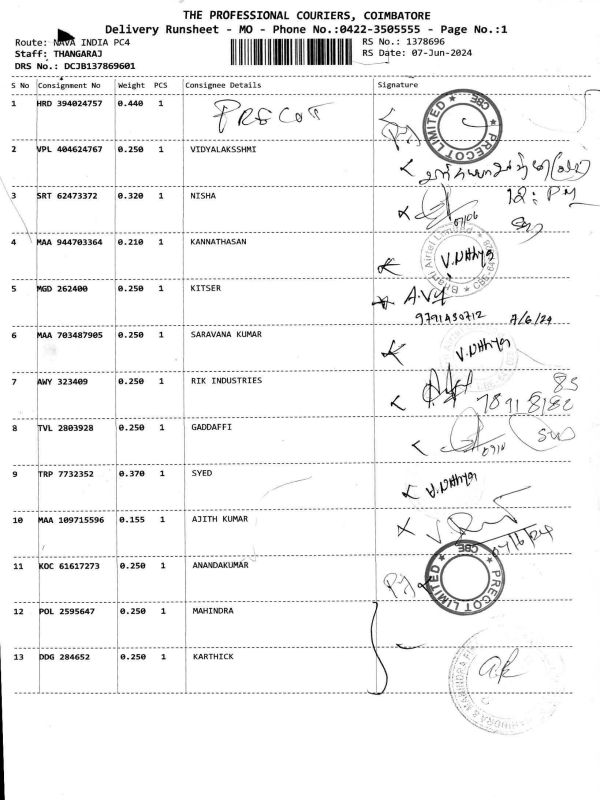 THE PROFESSIONAL COURIERS, COIMBATORE
Delivery Runsheet - MO - Phone No.:0422-3505555 - Page No.:1
Route: NAVA INDIA PC4 RS No.: 1378696
Staff: THANGARAJ RS Date: 07-Jun-2024
DRS No.: DCJB137869601
S No Consignment No Weight PCS Consignee Details Signature
1 HRD 394024757 0.440 1 PRECOT PRECOT LIMITED CBE
2 VPL 404624767 0.250 1 VIDYALAKSSHMI
12: PM
3 SRT 62473372 0.320 1 NISHA 07/06
4 MAA 944703364 0.210 1 KANNATHASAN V.DHIVYA Bharti Airtel Limited
5 MGD 262400 0.250 1 KITSER
9791430712 7/6/24
6 MAA 703487905 0.250 1 SARAVANA KUMAR V.DHIVYA
7 AWY 323409 0.250 1 RIK INDUSTRIES
8 TVL 2803928 0.250 1 GADDAFFI
9 TRP 7732352 0.370 1 SYED
10 MAA 109715596 0.155 1 AJITH KUMAR
07/6/24
11 KOC 61617273 0.250 1 ANANDAKUMAR PRECOT LIMITED CBE
12 POL 2595647 0.250 1 MAHINDRA
13 DDG 284652 0.250 1 KARTHICK